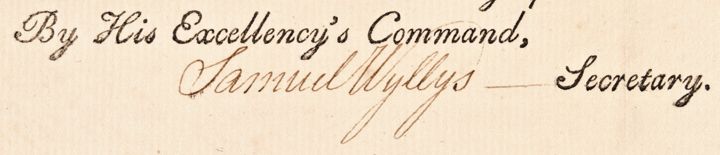 By His Excellency's Command,
Samuel Wyllys — Secretary.